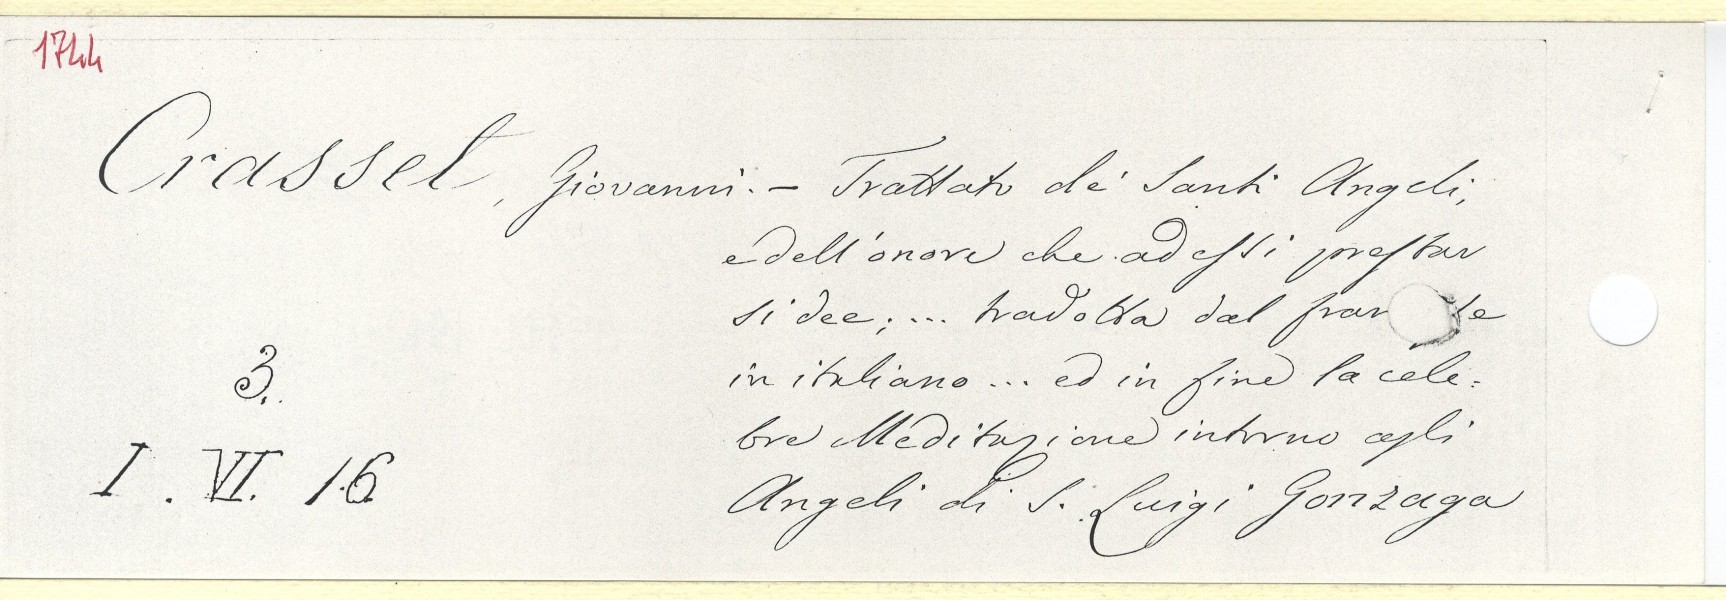 1744
Crasset, Giovanni. — Trattato de' Santi Angeli,
e dell'onore che ad essi prestar
si dee; ... tradotta dal
in italiano ... ed in fine la cele-
bre Meditazione intorno agli
Angeli di S. Luigi Gonzaga
3.
I. VI. 16